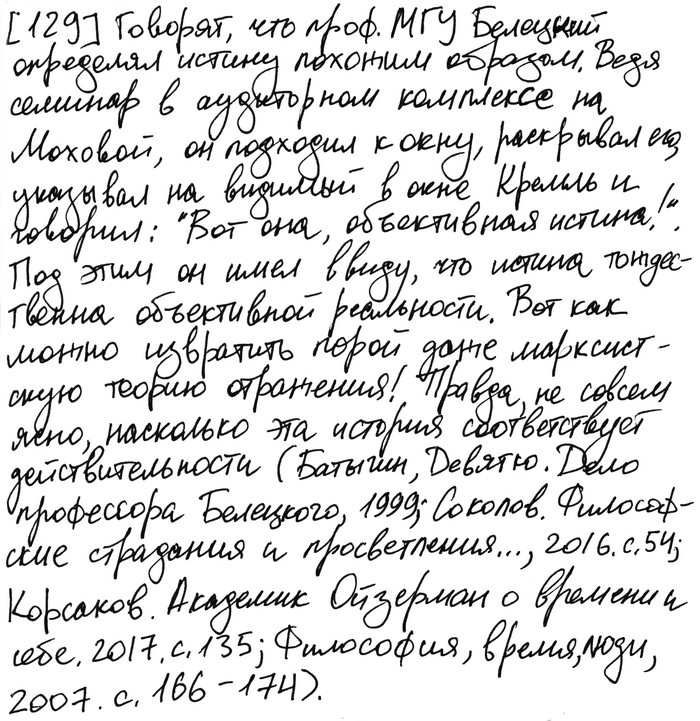 [129] Говорят, что проф. МГУ Белецкий
определял истину похожим образом. Ведя
семинар в аудиторном комплексе на
Моховой, он подходил к окну, раскрывал его,
указывал на видимый в окне Кремль и
говорил: "Вот она, объективная истина!".
Под этим он имел ввиду, что истина тождес-
твенна объективной реальности. Вот как
можно извратить порой даже марксист-
скую теорию отражения! Правда, не совсем
ясно, насколько эта история соответствует
действительности (Батыгин, Девятко. Дело
профессора Белецкого, 1999; Соколов. Философ-
ские страдания и просветления..., 2016. с.54;
Корсаков. Академик Ойзерман о времени и
себе. 2017. с.135; Философия, время, люди,
2007. с. 166-174).